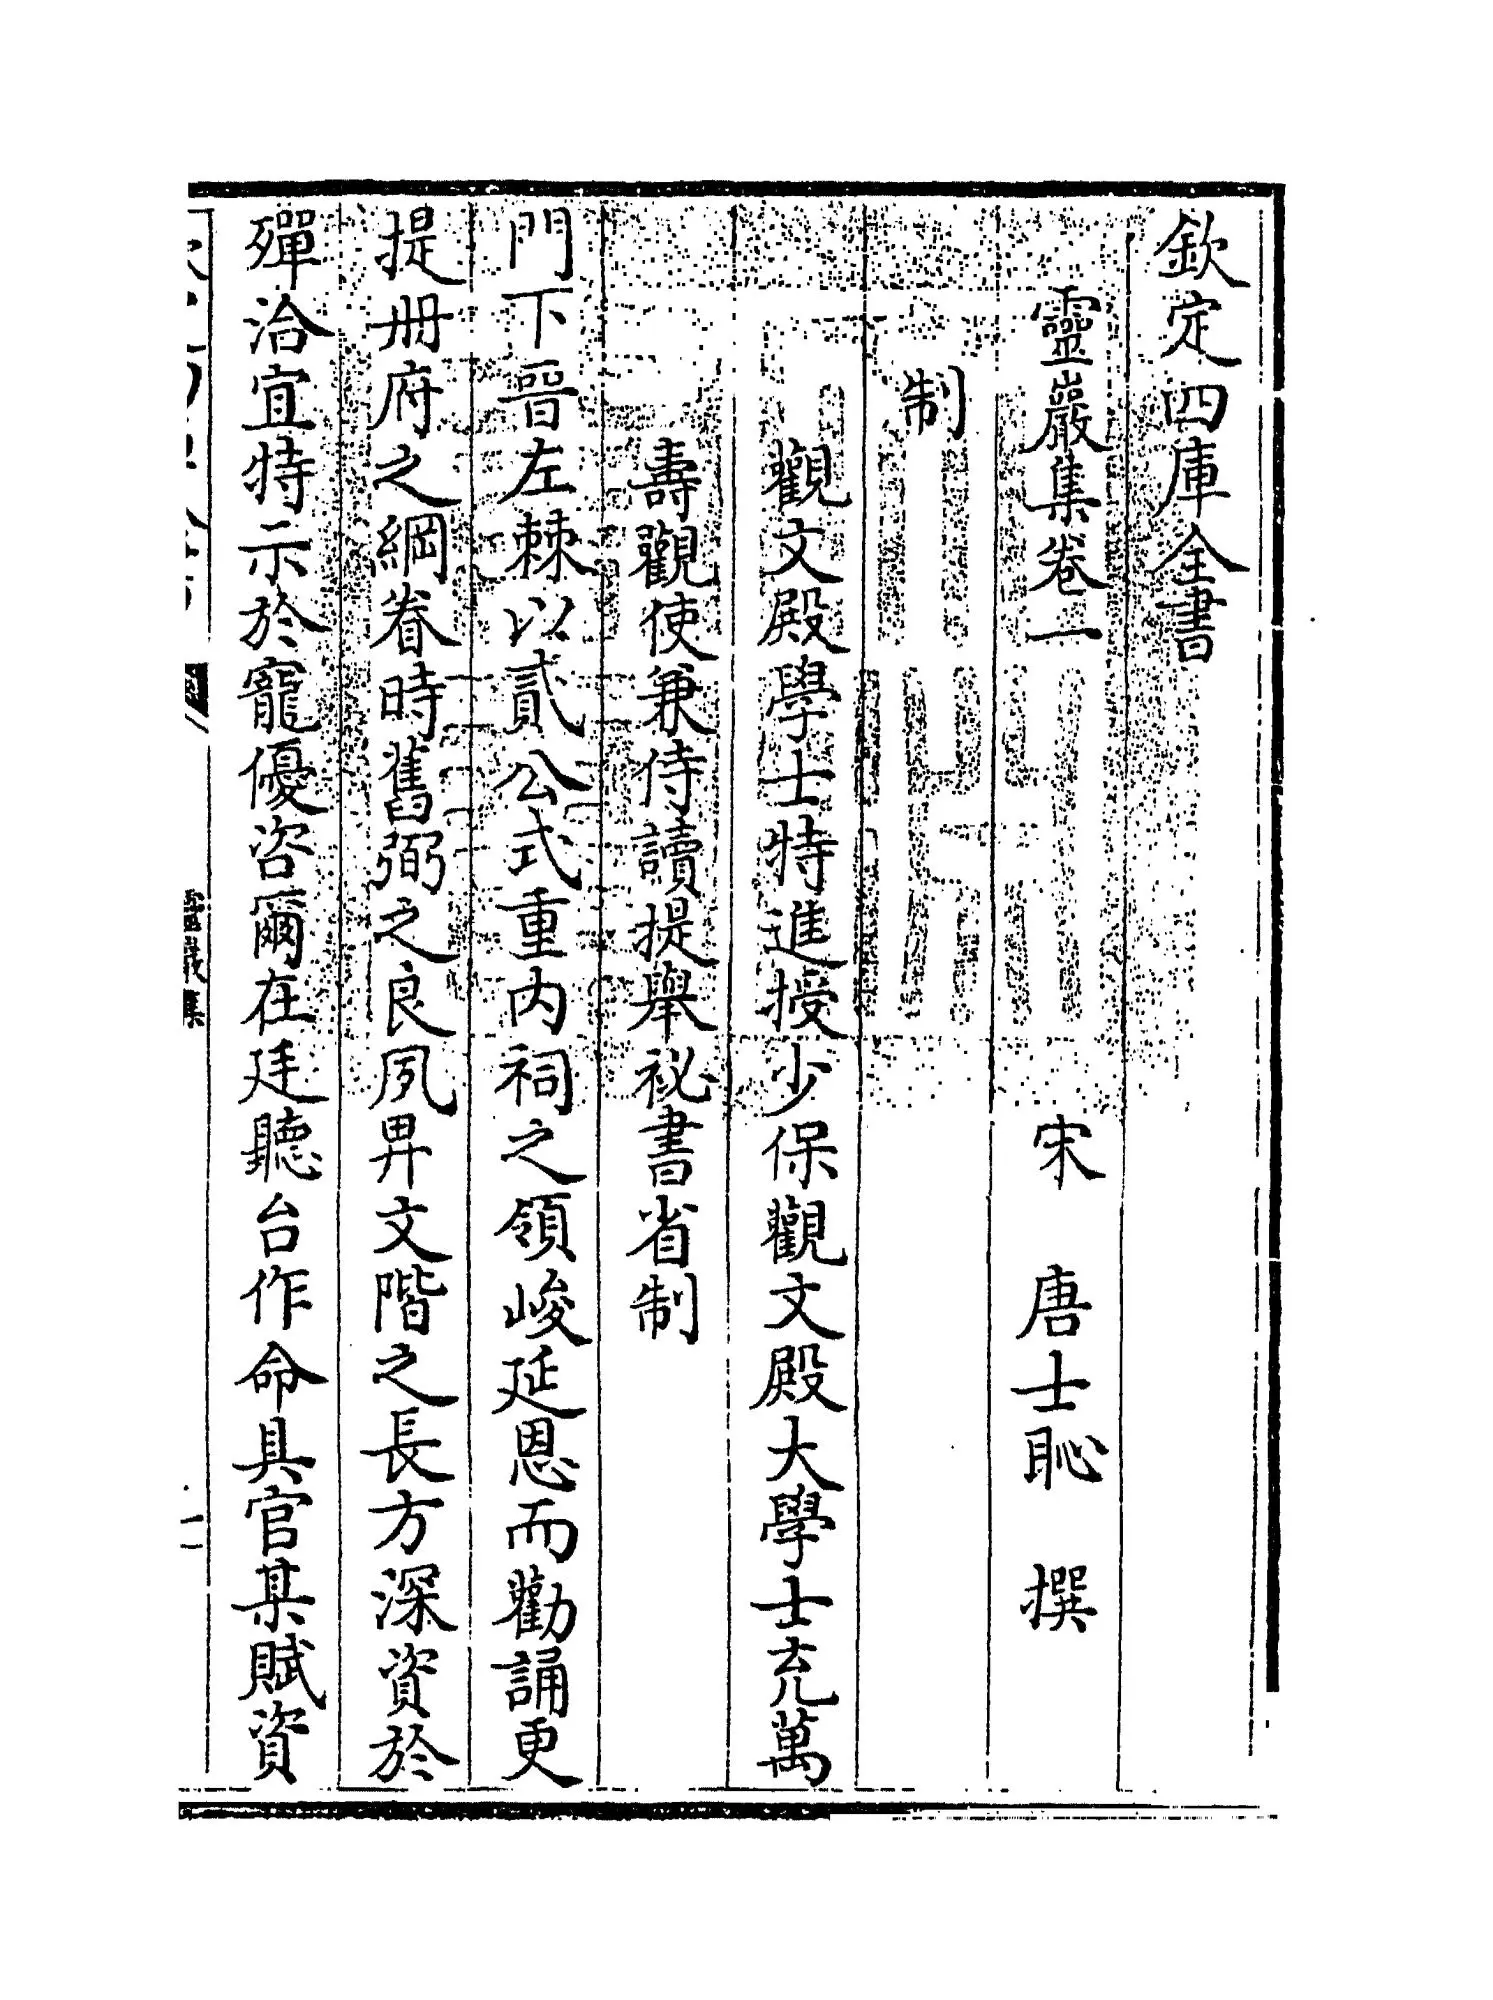 欽定四庫全書
靈巖集卷一　宋　唐士恥　撰
制
觀文殿學士特進授少保觀文殿大學士充萬
壽觀使兼侍讀提舉祕書省制
門下晉左棘以貳公式重內祠之領峻延恩而勸誦更
提册府之綱眷時舊弼之良夙畀文階之長方深資於
殫洽宜特示於寵優咨爾在廷聽台作命具官某賦資
靈巖集
一